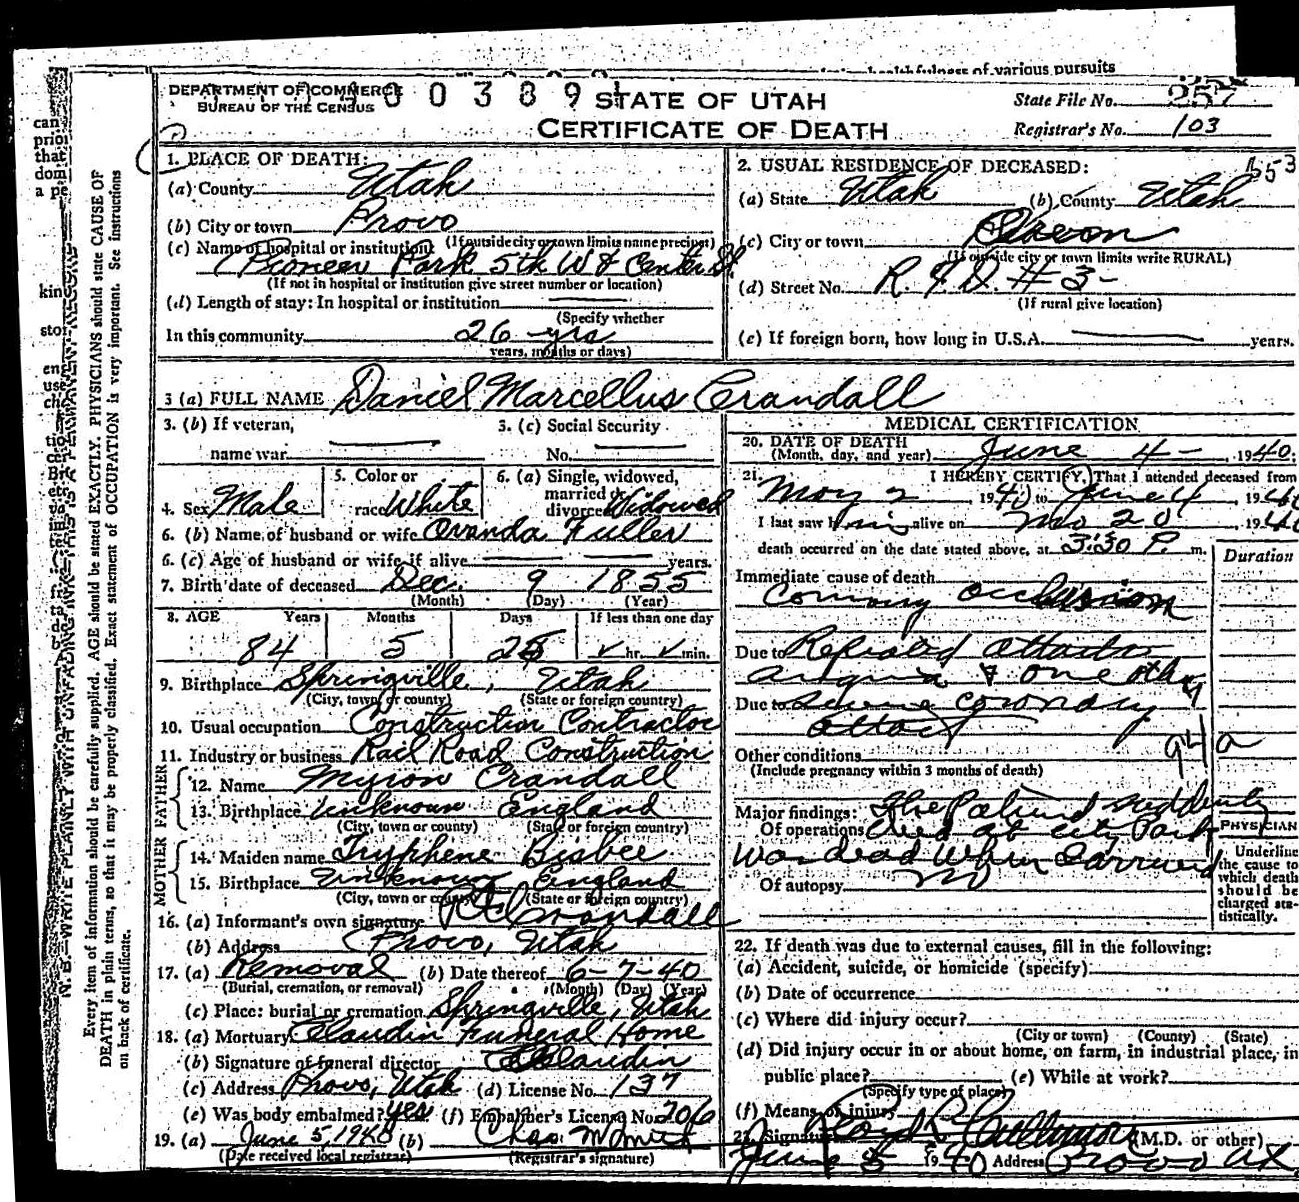 health fulness of various pursuits
DEPARTMENT OF COMMERCE
BUREAU OF THE CENSUS
0 0 3 8 9
STATE OF UTAH
CERTIFICATE OF DEATH
State File No. 257
Registrar's No. 103
553
1. PLACE OF DEATH:
(a) County Utah
(b) City or town Provo
(If outside city or town limits name precinct)
(c) Name of hospital or institution:
Pioneer Park 5th W & Center St.
(If not in hospital or institution give street number or location)
(d) Length of stay: In hospital or institution
(Specify whether
In this community 26 yrs
years, months or days)
2. USUAL RESIDENCE OF DECEASED:
(a) State Utah (b) County Utah
(c) City or town
(If outside city or town limits write RURAL)
(d) Street No. R.F.D. #3-
(If rural give location)
(e) If foreign born, how long in U.S.A. years.
3 (a) FULL NAME Daniel Marcellus Crandall
3. (b) If veteran,
name war
3. (c) Social Security
No.
4. Sex Male
5. Color or
race White
6. (a) Single, widowed,
married or
divorced Widowed
6. (b) Name of husband or wife Ovanda Fuller
6. (c) Age of husband or wife if alive years.
7. Birth date of deceased Dec. 9 1855
(Month) (Day) (Year)
8. AGE Years Months Days If less than one day
84 5 25 hr. min.
9. Birthplace Springville, Utah
(City, town or county) (State or foreign country)
10. Usual occupation Construction Contractor
11. Industry or business Rail Road Construction
FATHER
12. Name Myron Crandall
13. Birthplace Unknown England
(City, town or county) (State or foreign country)
MOTHER
14. Maiden name Tryphene Bisbee
15. Birthplace Unknown England
(City, town or county) (State or foreign country)
16. (a) Informant's own signature Crandall
(b) Address Provo, Utah
17. (a) Removal (b) Date thereof 6-7-40
(Burial, cremation, or removal) (Month) (Day) (Year)
(c) Place: burial or cremation Springville, Utah
18. (a) Mortuary Claudin Funeral Home
(b) Signature of funeral director Claudin
(c) Address Provo, Utah (d) License No. 137
(e) Was body embalmed? Yes (f) Embalmer's License No. 206
19. (a) June 5, 1940 (b) Chas. M Smith
(Date received local registrar) (Registrar's signature)
MEDICAL CERTIFICATION
20. DATE OF DEATH
(Month, day, and year) June 4- , 1940;
21. I HEREBY CERTIFY, That I attended deceased from
May 2 1940 to June 4 , 1940
I last saw him alive on 20 , 1940
death occurred on the date stated above, at 3:30 P. m.
Duration
Immediate cause of death
Coronary occlusion
Due to Repeated attacks
angina & one other
Due to Severe coronary
attack
94 a
Other conditions
(Include pregnancy within 3 months of death)
Major findings: The Patient suddenly
Of operations died at City Park
Was dead when I arrived
Of autopsy no
PHYSICIAN
Underline
the cause to
which death
should be
charged sta-
tistically.
22. If death was due to external causes, fill in the following:
(a) Accident, suicide, or homicide (specify)
(b) Date of occurrence
(c) Where did injury occur?
(City or town) (County) (State)
(d) Did injury occur in or about home, on farm, in industrial place, in
public place? (e) While at work?
(Specify type of place)
(f) Means of injury
23. Signature Lloyd L. Cullimore (M.D. or other)
June 5 1940 Address Provo Ut
N. B.—WRITE PLAINLY WITH UNFADING INK—THIS IS A PERMANENT RECORD
Every item of information should be carefully supplied. AGE should be stated EXACTLY. PHYSICIANS should state CAUSE OF
DEATH in plain terms, so that it may be properly classified. Exact statement of OCCUPATION is very important. See instructions
on back of certificate.